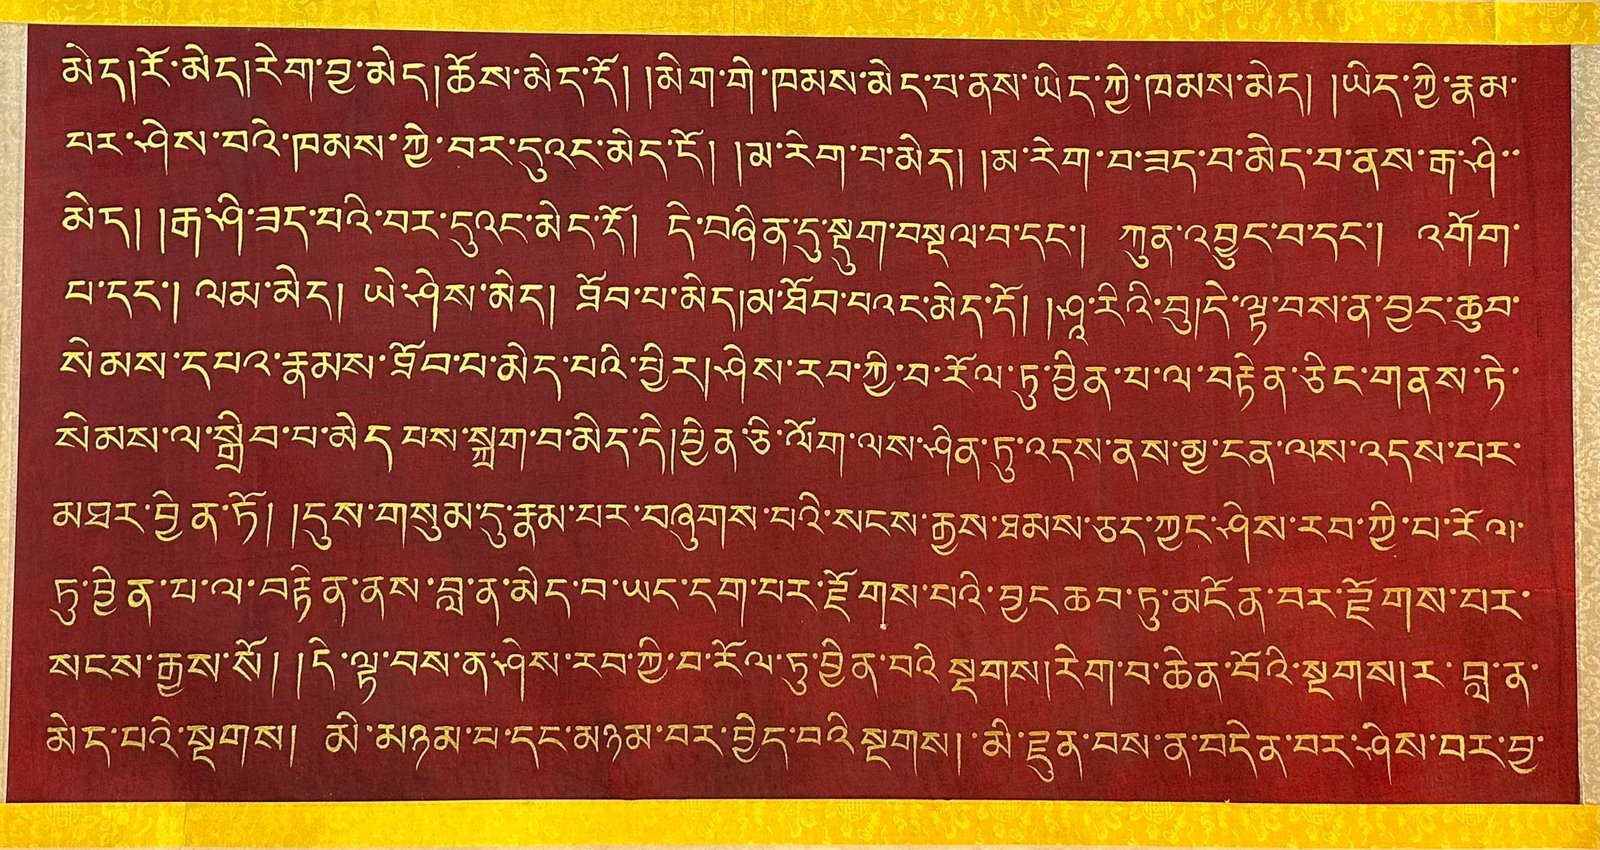 མེད།རོ་མེད།རེག་བྱ་མེད།ཆོས་མེད་དོ། །མིག་གི་ཁམས་མེད་པ་ནས་ཡིད་ཀྱི་ཁམས་མེད། །ཡིད་ཀྱི་རྣམ་
པར་ཤེས་པའི་ཁམས་ཀྱི་བར་དུའང་མེད་དོ། །མ་རིག་པ་མེད། །མ་རིག་པ་ཟད་པ་མེད་པ་ནས་རྒ་ཤི་
མེད། །རྒ་ཤི་ཟད་པའི་བར་དུའང་མེད་དོ། དེ་བཞིན་དུ་སྡུག་བསྔལ་བ་དང་། ཀུན་འབྱུང་བ་དང་། འགོག་
པ་དང་། ལམ་མེད། ཡེ་ཤེས་མེད། ཐོབ་པ་མེད།མ་ཐོབ་པའང་མེད་དོ། །ཤཱ་རིའི་བུ།དེ་ལྟ་བས་ན་བྱང་ཆུབ་
སེམས་དཔའ་རྣམས་ཐོབ་པ་མེད་པའི་ཕྱིར།ཤེས་རབ་ཀྱི་པ་རོལ་ཏུ་ཕྱིན་པ་ལ་བརྟེན་ཅིང་གནས་ཏེ་
སེམས་ལ་སྒྲིབ་པ་མེད་པས་སྐྲག་པ་མེད་དེ།ཕྱིན་ཅི་ལོག་ལས་ཤིན་ཏུ་འདས་ནས་མྱ་ངན་ལས་འདས་པར་
མཐར་ཕྱིན་ཏོ། །དུས་གསུམ་དུ་རྣམ་པར་བཞུགས་པའི་སངས་རྒྱས་ཐམས་ཅད་ཀྱང་ཤེས་རབ་ཀྱི་པ་རོལ་
ཏུ་ཕྱིན་པ་ལ་བརྟེན་ནས་བླ་ན་མེད་པ་ཡང་དག་པར་རྫོགས་པའི་བྱང་ཆབ་ཏུ་མངོན་པར་རྫོགས་པར་
སངས་རྒྱས་སོ། །དེ་ལྟ་བས་ན་ཤེས་རབ་ཀྱི་པ་རོལ་ཏུ་ཕྱིན་པའི་སྔགས།རིག་པ་ཆེན་པོའི་སྔགས།ར་བླ་ན་
མེད་པའི་སྔགས། མི་མཉམ་པ་དང་མཉམ་པར་བྱེད་པའི་སྔགས། མི་རྫུན་པས་ན་བདེན་པར་ཤེས་པར་བྱ་